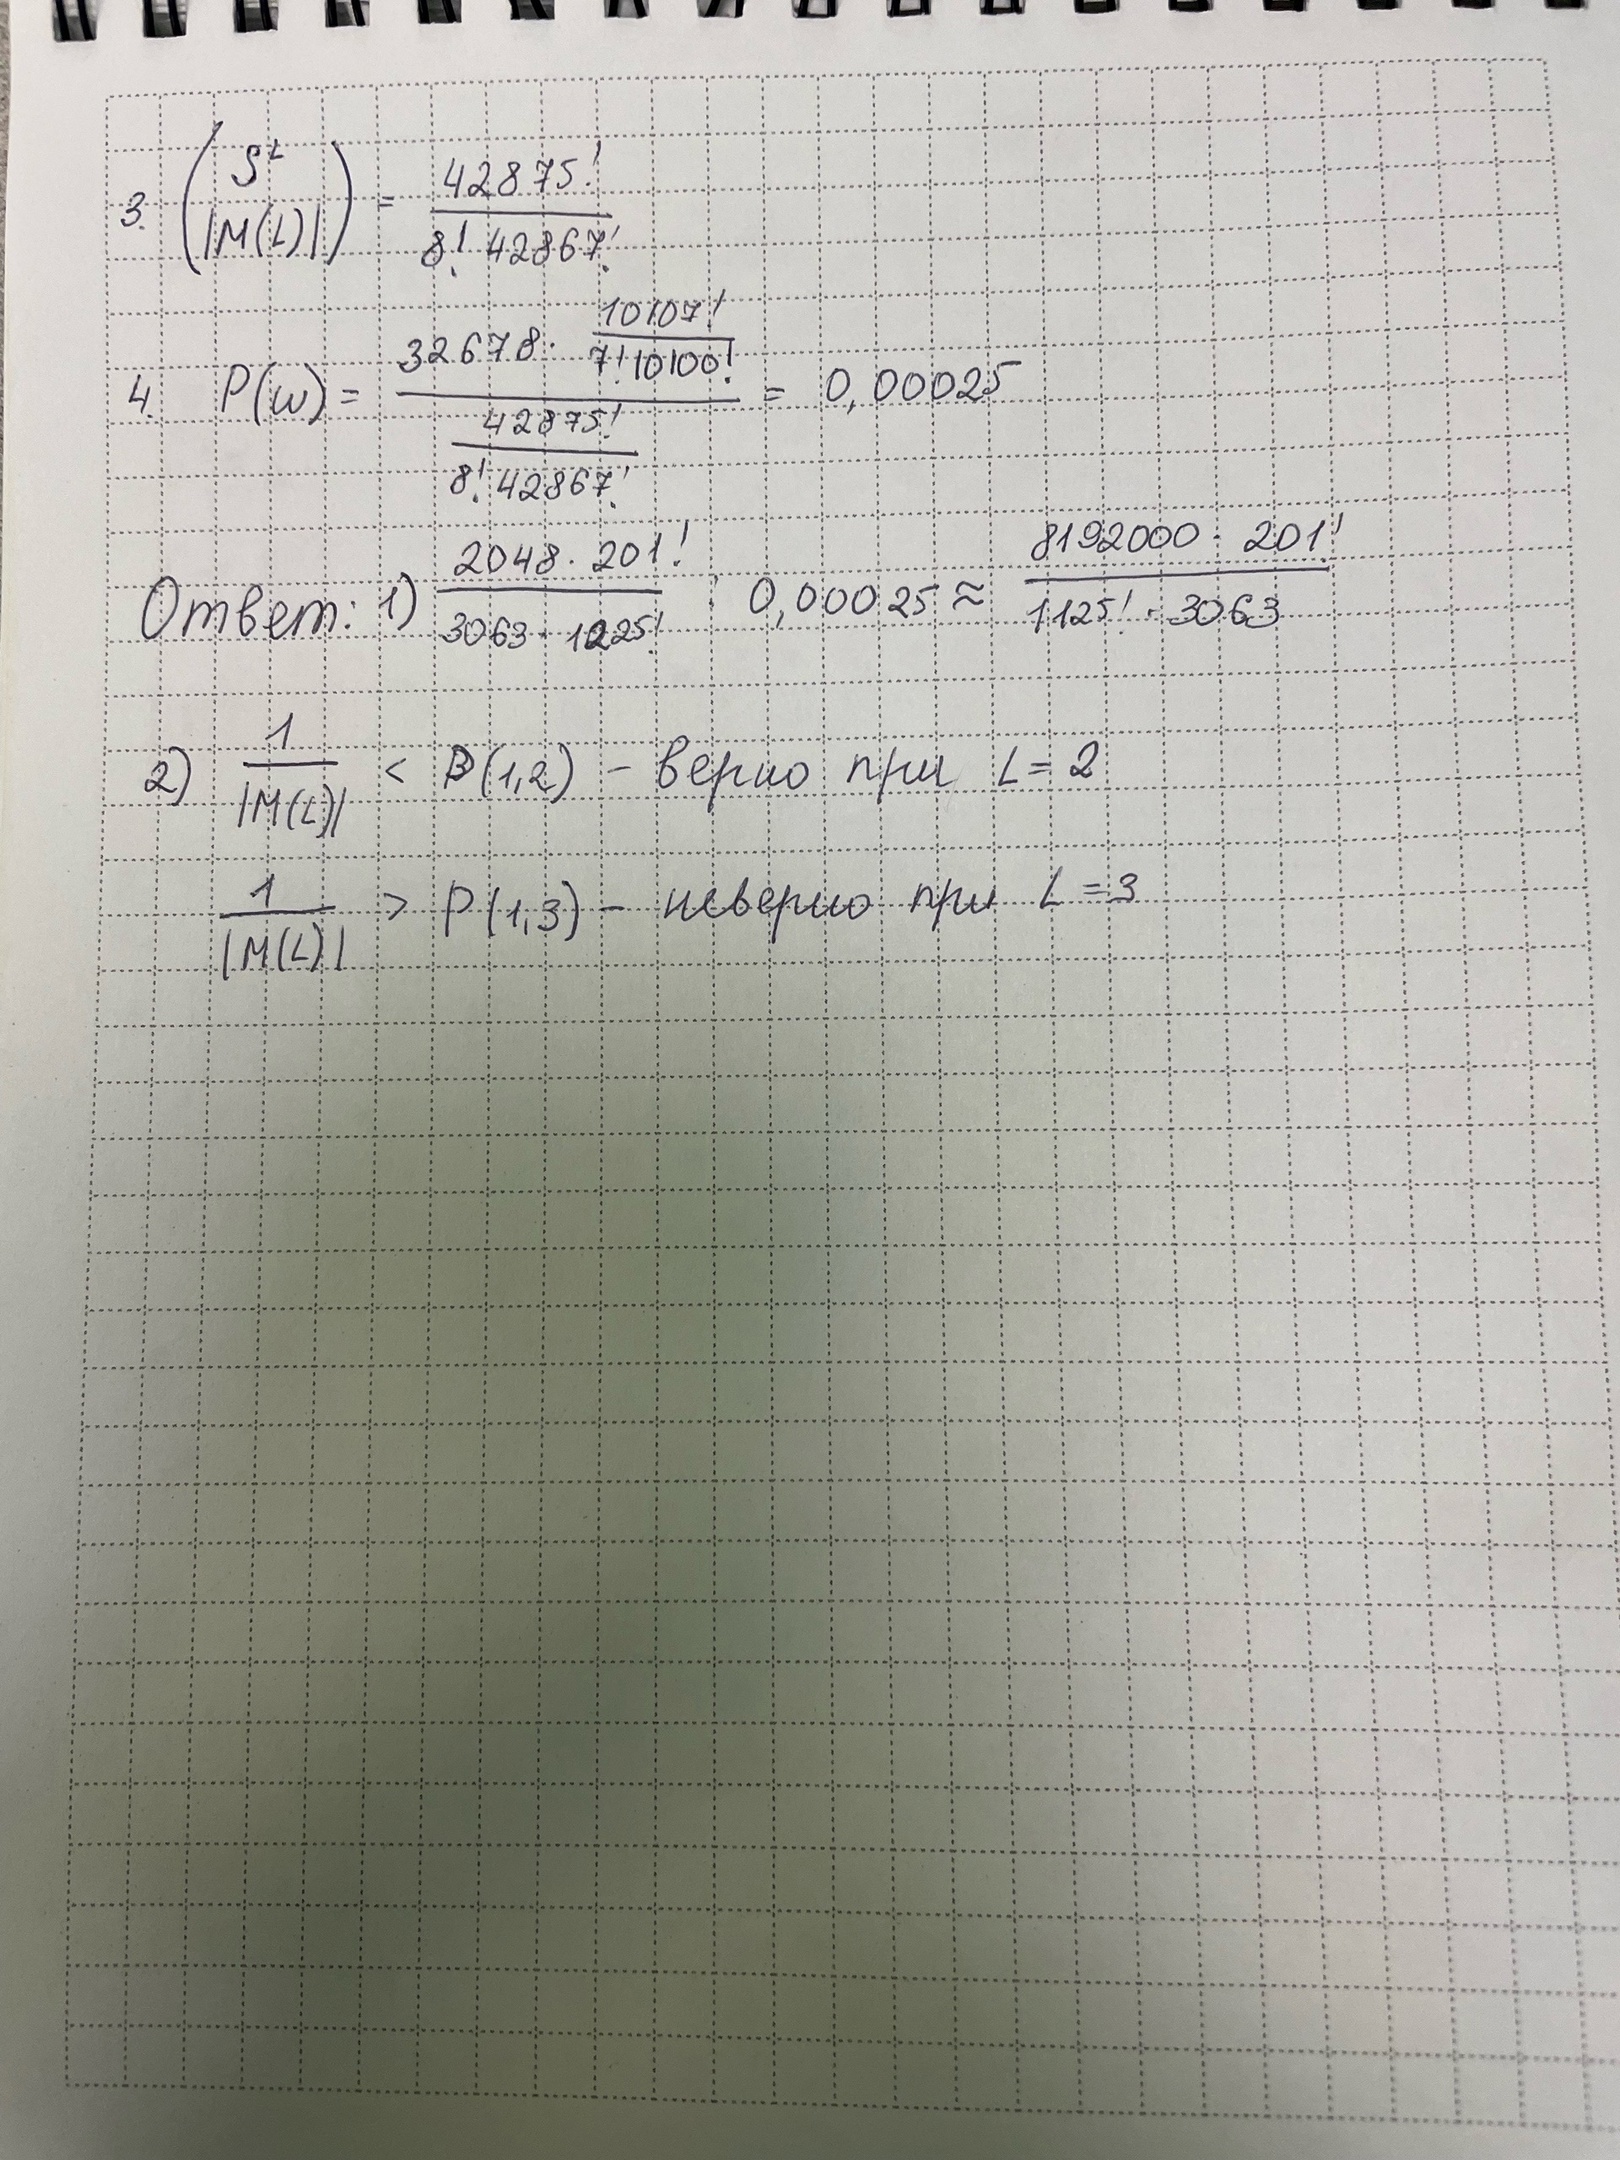 3. (S^L / |M(L)|) = 42875! / 8! 42867!
4. P(ω) = (32678 · 10107! / 7! 10100!) / (42875! / 8! 42867!) = 0,00025
Ответ: 1) 2048 · 201! / 3063 · 1225! : 0,00025 ≈ 8192000 · 201! / 1125! · 3063
2) 1 / |M(L)| < P(1,2) – верно при L = 2
1 / |M(L)| > P(1,3) – неверно при L = 3